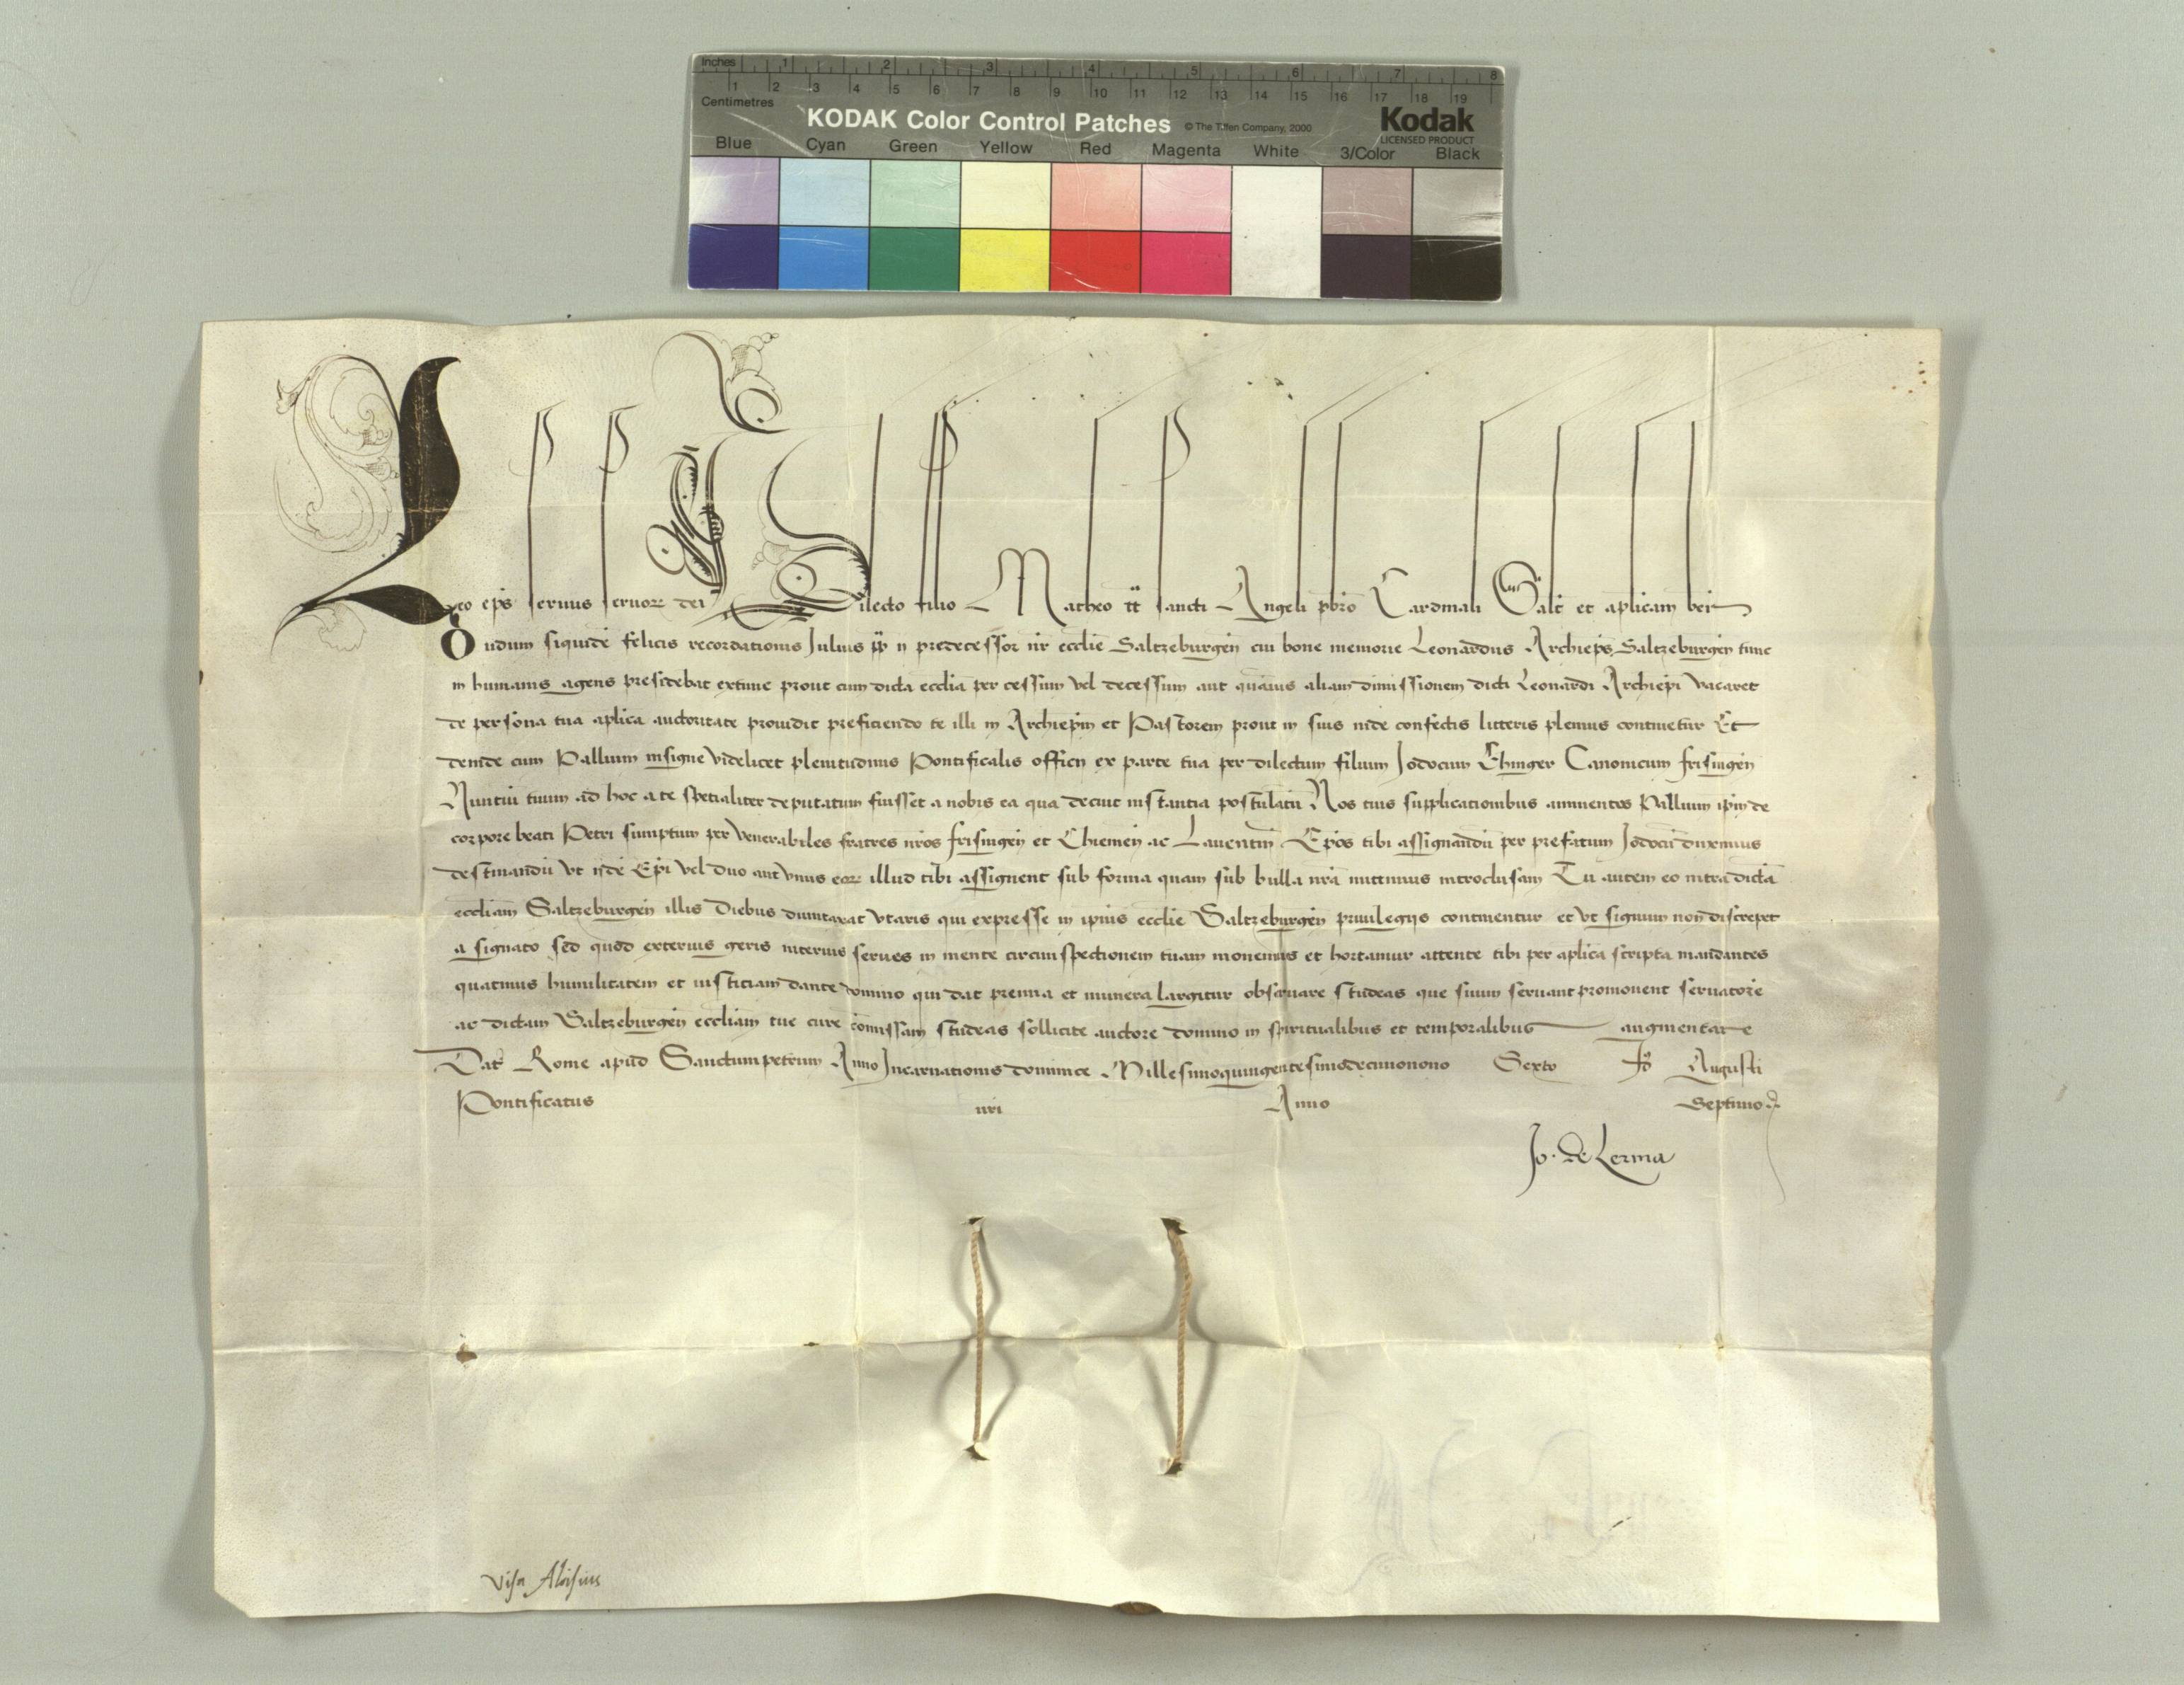 Inches 1 2 3 4 5 6 7 8
1 2 3 4 5 6 7 8 9 10 11 12 13 14 15 16 17 18 19
Centimetres
KODAK Color Control Patches © The Tiffen Company, 2000 Kodak
LICENSED PRODUCT
Blue Cyan Green Yellow Red Magenta White 3/Color Black
Leo ep̄s seruus seruoꝝ dei Dilecto filio Matheo tt̄ sancti Angeli pbr̄o Cardinali Salt̄ et apl̄icam ben̄
Dudum siquidē felicis recordationis Julius pp̄ ii predecessor nr̄ eccl̄ie Saltzeburgeñ cui bone memorie Leonardus Archiep̄s Saltzeburgeñ tunc
in humanis agens presidebat extunc prout cum dicta eccl̄ia per cessum vel decessum aut quāuis aliam dimissionem dicti Leonardi Archiep̄i vacaret
de persona tua apl̄ica auctoritate prouidit preficiendo te illi in Archiep̄m et Pastorem prout in suis inde confectis litteris plenius continetur Et
deinde cum Pallium insigne videlicet plenitudinis Pontificalis officii ex parte tua per dilectum filium Jodocum Ehinger Canonicum frisingeñ
Nuntiū tuum ad hoc a te spetialiter deputatum fuisset a nobis ea qua decuit instantia postulatū Nos tuis supplicationibus annuentes Pallium ip̄m de
corpore beati Petri sumptum per venerabiles fratres nr̄os frisingeñ et Chiemeñ ac Lauentiñ Ep̄os tibi assignandū per prefatum Jodocū duximus
destinandū vt ijdē Ep̄i vel duo aut vnus eoꝝ illud tibi assignent sub forma quam sub bulla nr̄a mittimus introclusam Tu autem eo intra dictā
eccl̄iam Saltzeburgeñ illis diebus dumtaxat vtaris qui expresse in ip̄ius eccl̄ie Saltzeburgeñ priuilegijs continentur et vt signum non discrepet
a signato sed quod exterius geris interius serues in mente circumspectionem tuam monemus et hortamur attente tibi per apl̄ica scripta mandantes
quatinus humilitatem et iusticiam dante domino qui dat premia et munera largitur obseruare studeas que suum seruant promouent seruatorē
ac dictam Saltzeburgeñ eccl̄iam tue cure cōmissam studeas sollicite auctore domino in spiritualibus et temporalibus augmentare
Dat̄ Rome apud Sanctumpetrum Anno Incarnationis dominice Millesimoquingentesimodecimonono Sexto Id̄ Augusti
Pontificatus nr̄i Anno Septimo
Jo. de Lerma
visa Aloisius